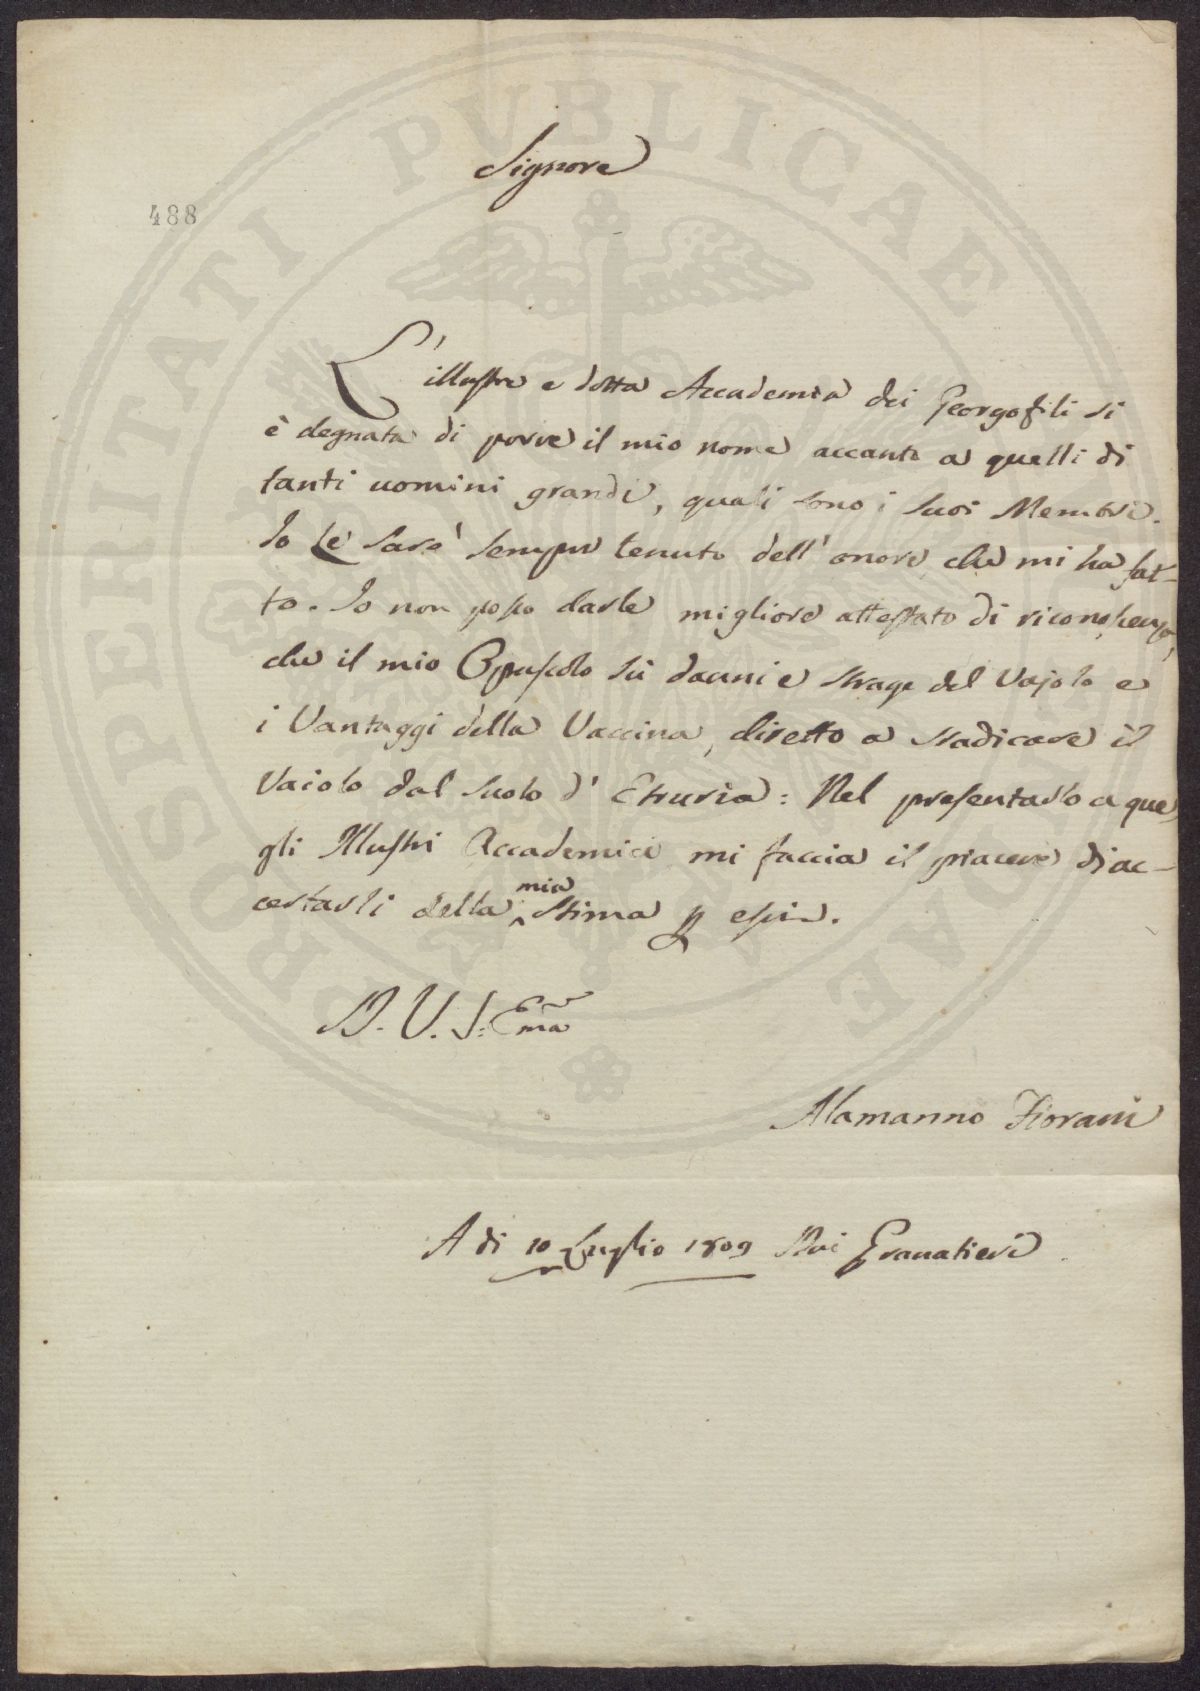 Signore
488
L'illustre e dotta Accademia dei Georgofili si
è degnata di porre il mio nome accanto a quelli di
tanti uomini grandi, quali sono i suoi Membri.
Io Le sarò sempre tenuto dell'onore che mi ha fat-
to. Io non posso darle migliore attestato di riconoscenza,
che il mio Opuscolo su danni e strage del Vajolo e
i Vantaggi della Vaccina, diretto a sradicare il
Vaiolo dal suolo d'Etruria: Nel presentarlo a que
gli Illustri Accademici mi faccia il piacere di ac-
certarli della mia Stima
D. V. S. Ema
Alamanno
A di 10 Luglio 1809 Granatieri
PROSPERITATI PUBLICAE